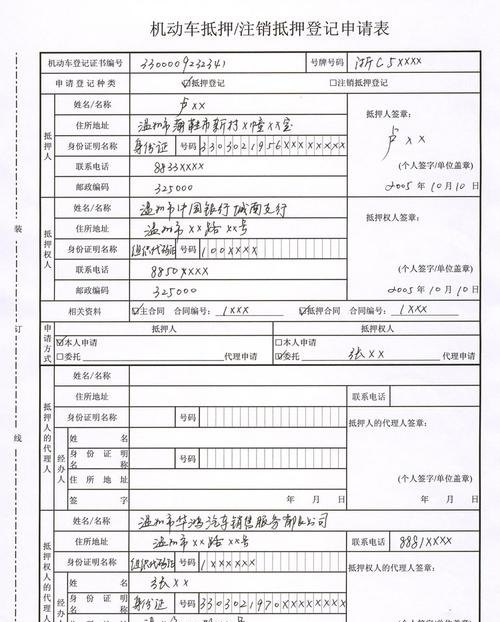 机动车抵押/注销抵押登记申请表
机动车登记证书编号 3300009232341 号牌号码 浙C5XXXX
申请登记种类 ☑抵押登记 □注销抵押登记
抵押人
姓名/名称 卢XX
住所地址 温州市 鞋市新村X幢XX室
身份证明名称 身份证 号码 3303021956XXXXXXXX
联系电话 8833XXXX
邮政编码 325000
抵押人签章:
卢XX
(个人签字/单位盖章)
2005年10月10日
抵押权人
姓名/名称 温州市中国银行城南支行
住所地址 温州市XX路XX号
身份证明名称 组织代码证 号码 100XXXXXX
联系电话 8850XXXX
邮政编码 325000
抵押权人签章:
(个人签字/单位盖章)
2005年10月10日
相关资料 ☑主合同 合同编号: 1XXX ☑抵押合同 合同编号: 1XXX
申请方式
抵押人 抵押权人
☑本人申请 □本人申请
□委托 代理申请 ☑委托 张XX 代理申请
抵押人的代理人
姓名/名称
住所地址 联系电话
身份证明名称 号码
抵押人的代理人签章:
经办人
姓名
身份证明名称 号码
住所地址
签字 年 月 日
(个人签字/单位盖章)
年 月 日
姓名/名称 温州市华鸿汽车销售服务有限公司
住所地址 温州市XX路XX号 联系电话 8881XXXX
身份证明名称 组织代码证 号码 1XXXXXX
抵押权人的代理人签章:
姓名 张XX
身份证明名称 身份证 号码 3303021970XXXXXXXX